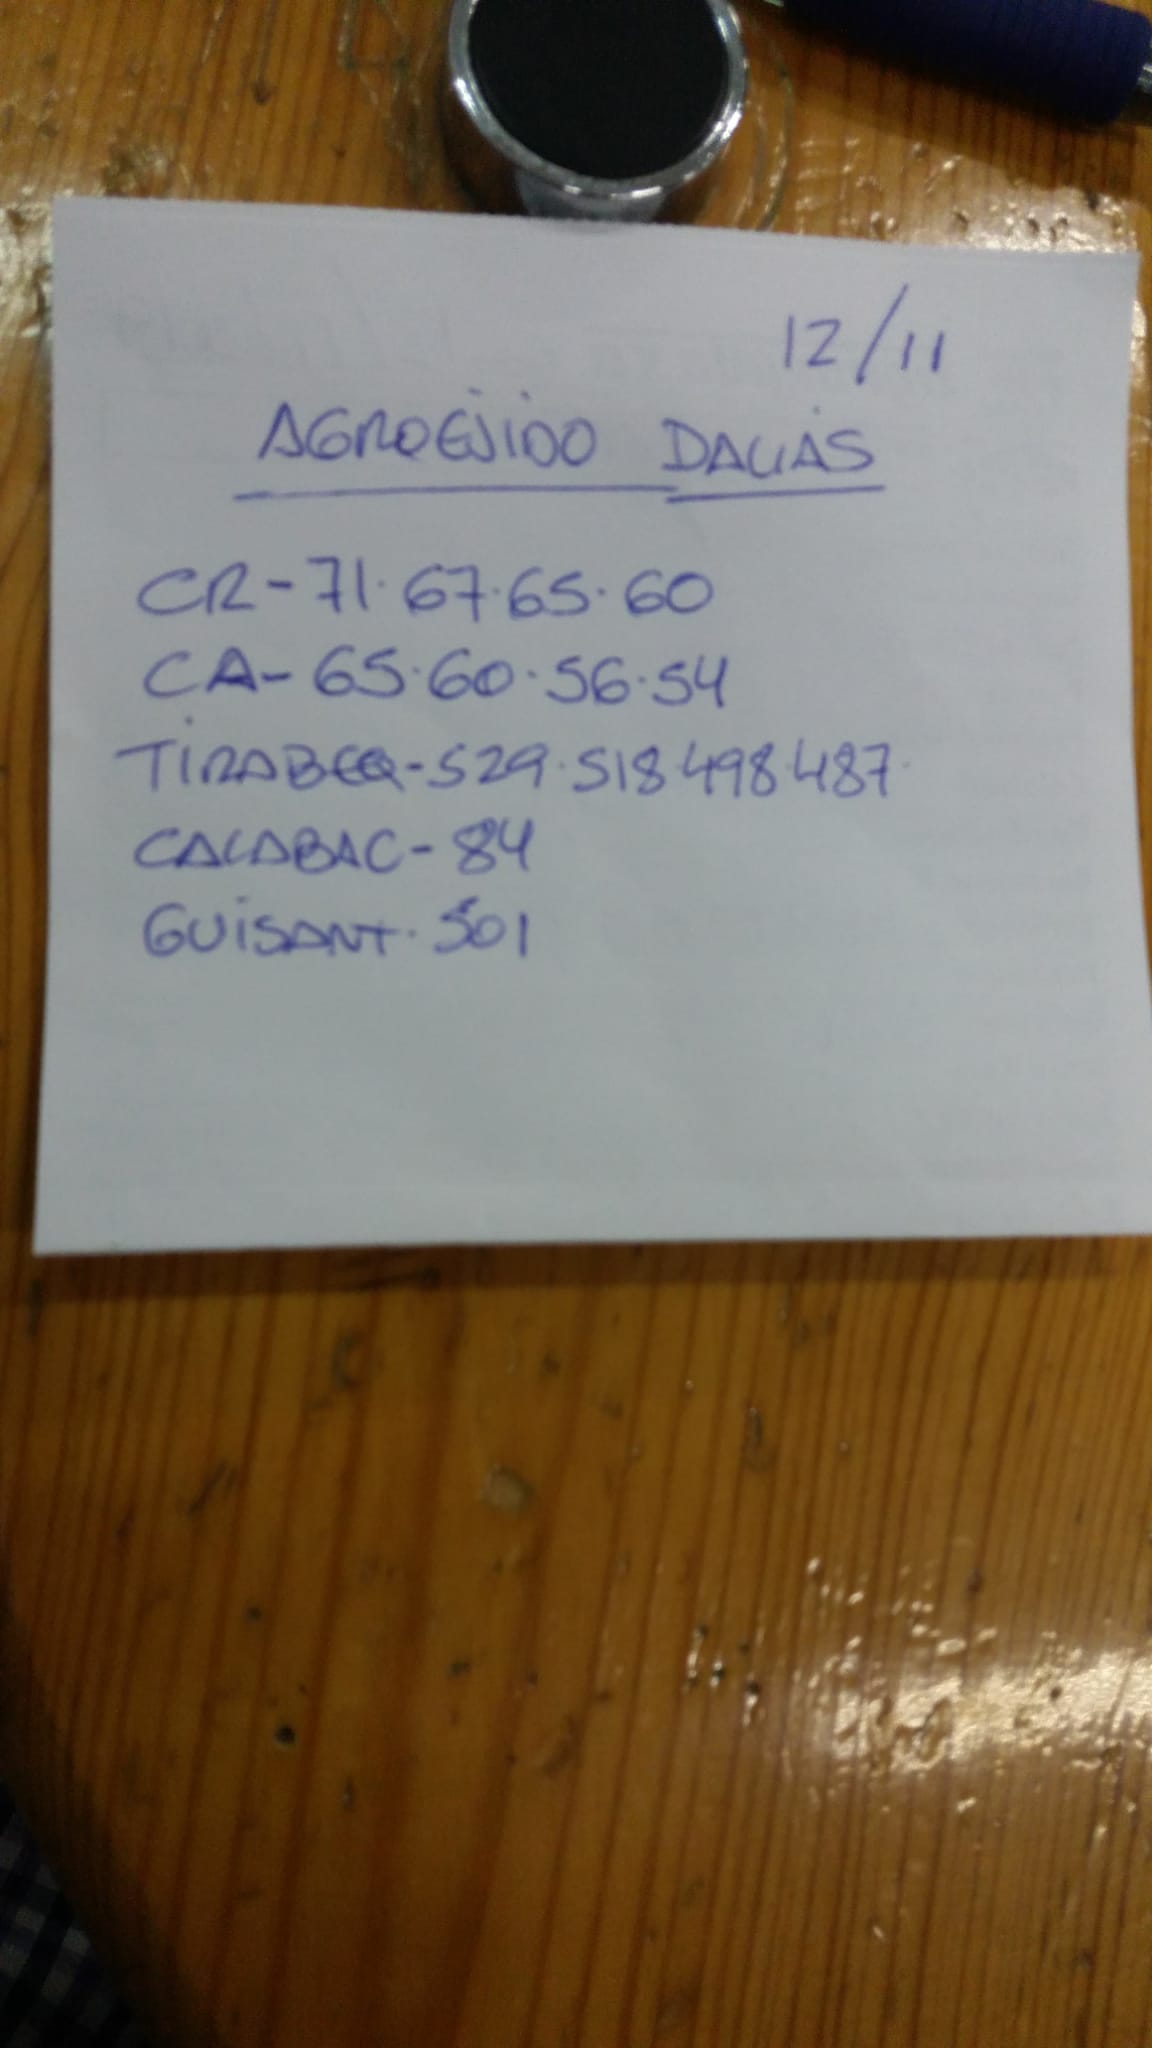 12/11
AGROEJIDO DALIAS
CR-71.67.65.60
CA-65.60.56.54
TIRABEQ-529.518 498.487.
CALABAC-84
GUISANT.501